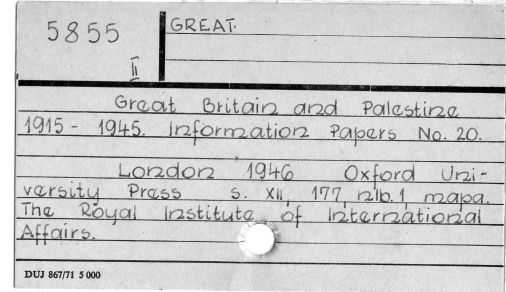 5855
II
GREAT.
Great Britain and Palestine
1915 - 1945. Information Papers No. 20.
London 1946 Oxford Uni-
versity Press s. XII, 177, nlb. 1 mapa.
The Royal Institute of International
Affairs.
DUJ 867/71 5 000